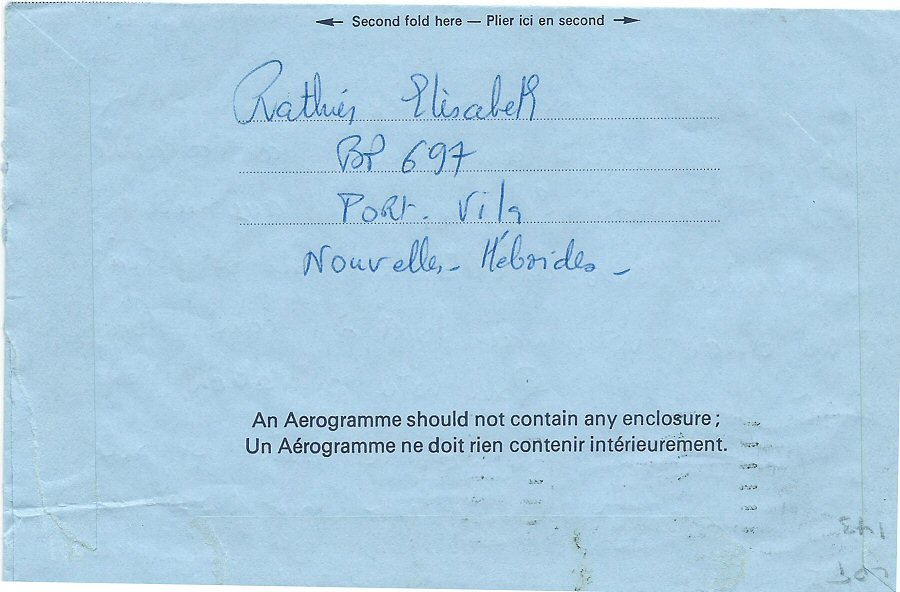 ← Second fold here — Plier ici en second →
Rathiés Elisabeth
BP 697
Port. Vila
Nouvelles - Hébrides -
An Aerogramme should not contain any enclosure;
Un Aérogramme ne doit rien contenir intérieurement.